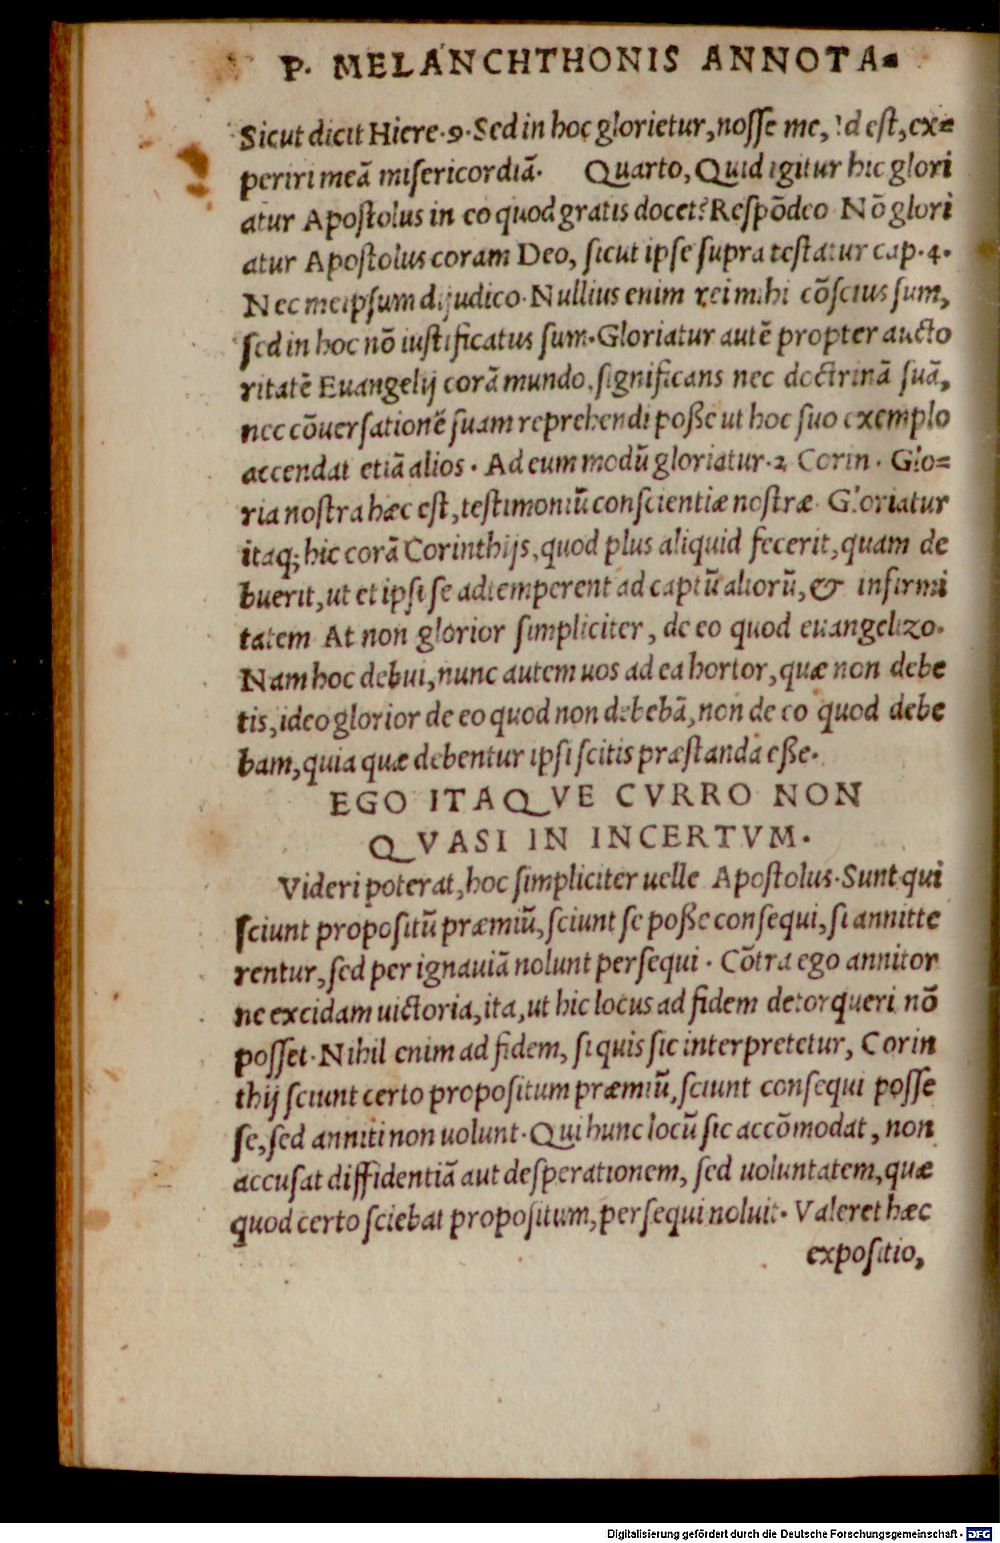 P. MELANCHTHONIS ANNOTA⸗
Sicut dicit Hiere.9.Sed in hoc glorietur, nosse me, id est, ex⸗
periri meā misericordiā. Quarto, Quid igitur hic glori
atur Apostolus in eo quod gratis docet? Respōdeo Nō glori
atur Apostolus coram Deo, sicut ipse supra testatur cap.4.
Nec meipsum dijudico. Nullius enim rei mihi cōscius sum,
sed in hoc nō iustificatus sum. Gloriatur autē propter aucto
ritatē Euangelij corā mundo, significans nec doctrinā suā,
nec cōuersationē suam reprehendi posse ut hoc suo exemplo
accendat etiā alios. Ad eum modū gloriatur.2 Corin. Glo⸗
ria nostra hæc est, testimoniū conscientiæ nostræ. Gloriatur
itaq; hic corā Corinthijs, quod plus aliquid fecerit, quam de
buerit, ut et ipsi se adtemperent ad captū aliorū, & infirmi
tatem At non glorior simpliciter, de eo quod euangelizo.
Nam hoc debui, nunc autem uos ad ea hortor, quæ non debe
tis, ideo glorior de eo quod non debebā, non de eo quod debe
bam, quia quæ debentur ipsi scitis præstanda esse.
EGO ITAQVE CVRRO NON
QVASI IN INCERTVM.
Videri poterat, hoc simpliciter uelle Apostolus. Sunt qui
sciunt propositū præmiū, sciunt se posse consequi, si annitte
rentur, sed per ignauiā nolunt persequi. Cōtra ego annitor
ne excidam uictoria, ita, ut hic locus ad fidem detorqueri nō
posset. Nihil enim ad fidem, si quis sic interpretetur, Corin
thij sciunt certo propositum præmiū, sciunt consequi posse
se, sed anniti non uolunt. Qui hunc locū sic accōmodat, non
accusat diffidentiā aut desperationem, sed uoluntatem, quæ
quod certo sciebat propositum, persequi noluit. Valeret hæc
expositio,
Digitalisierung gefördert durch die Deutsche Forschungsgemeinschaft - DFG